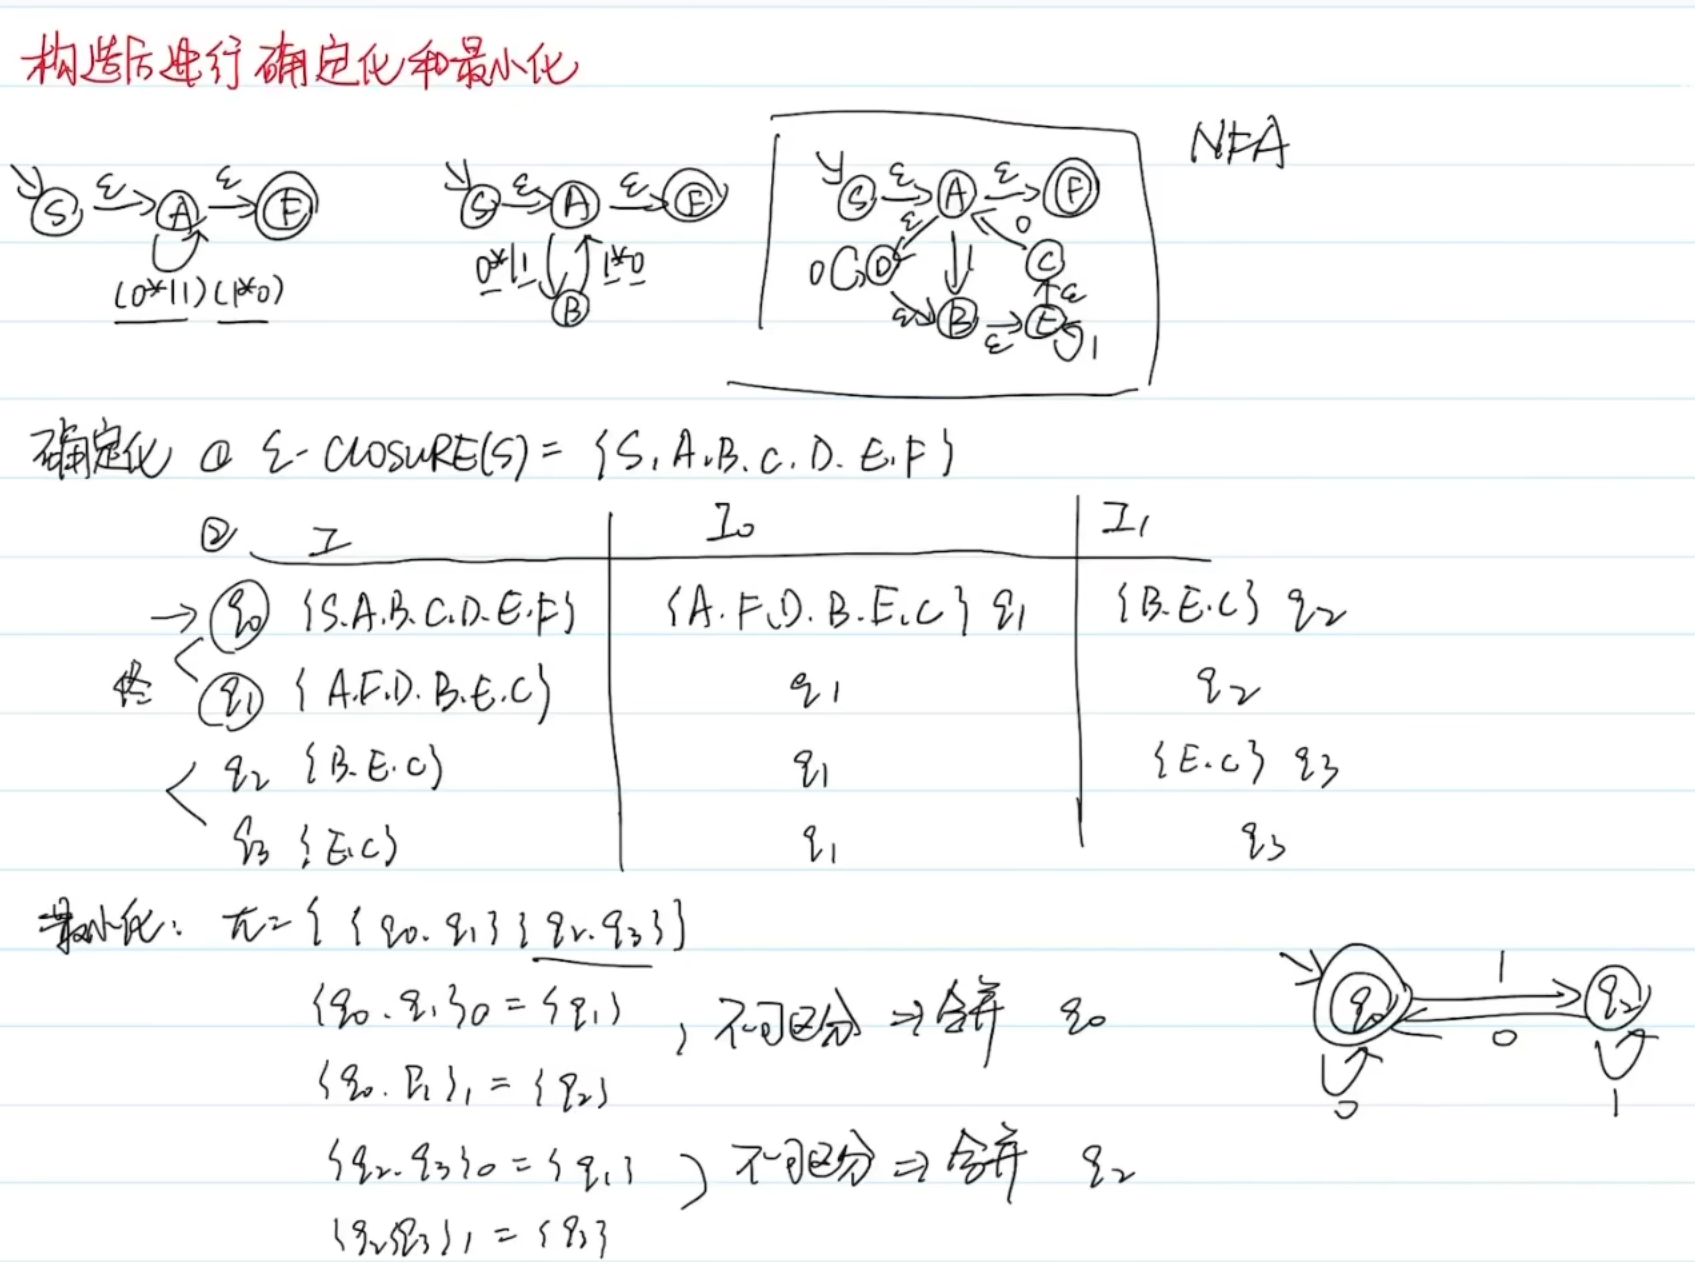 构造后进行确定化和最小化
S ε A ε F
(0*|1)(1*0)
S ε A ε F
0*|1 1*0
B
NFA
S ε A ε F
ε 0
0 D 1 C
ε B ε E ε 1
确定化 ① ε-CLOSURE(S) = {S.A.B.C.D.E.F}
② I I₀ I₁
→ q₀ {S.A.B.C.D.E.F} {A.F.D.B.E.C} q₁ {B.E.C} q₂
终 q₁ {A.F.D.B.E.C} q₁ q₂
q₂ {B.E.C} q₁ {E.C} q₃
q₃ {E.C} q₁ q₃
最小化: π={{q₀.q₁}{q₂.q₃}}
{q₀.q₁}₀ = {q₁} , 不可区分 ⇒ 合并 q₀
{q₀.q₁}₁ = {q₂}
{q₂.q₃}₀ = {q₁} ) 不可区分 ⇒ 合并 q₂
{q₂q₃}₁ = {q₃}
q₀ 1 q₂
0
0 1